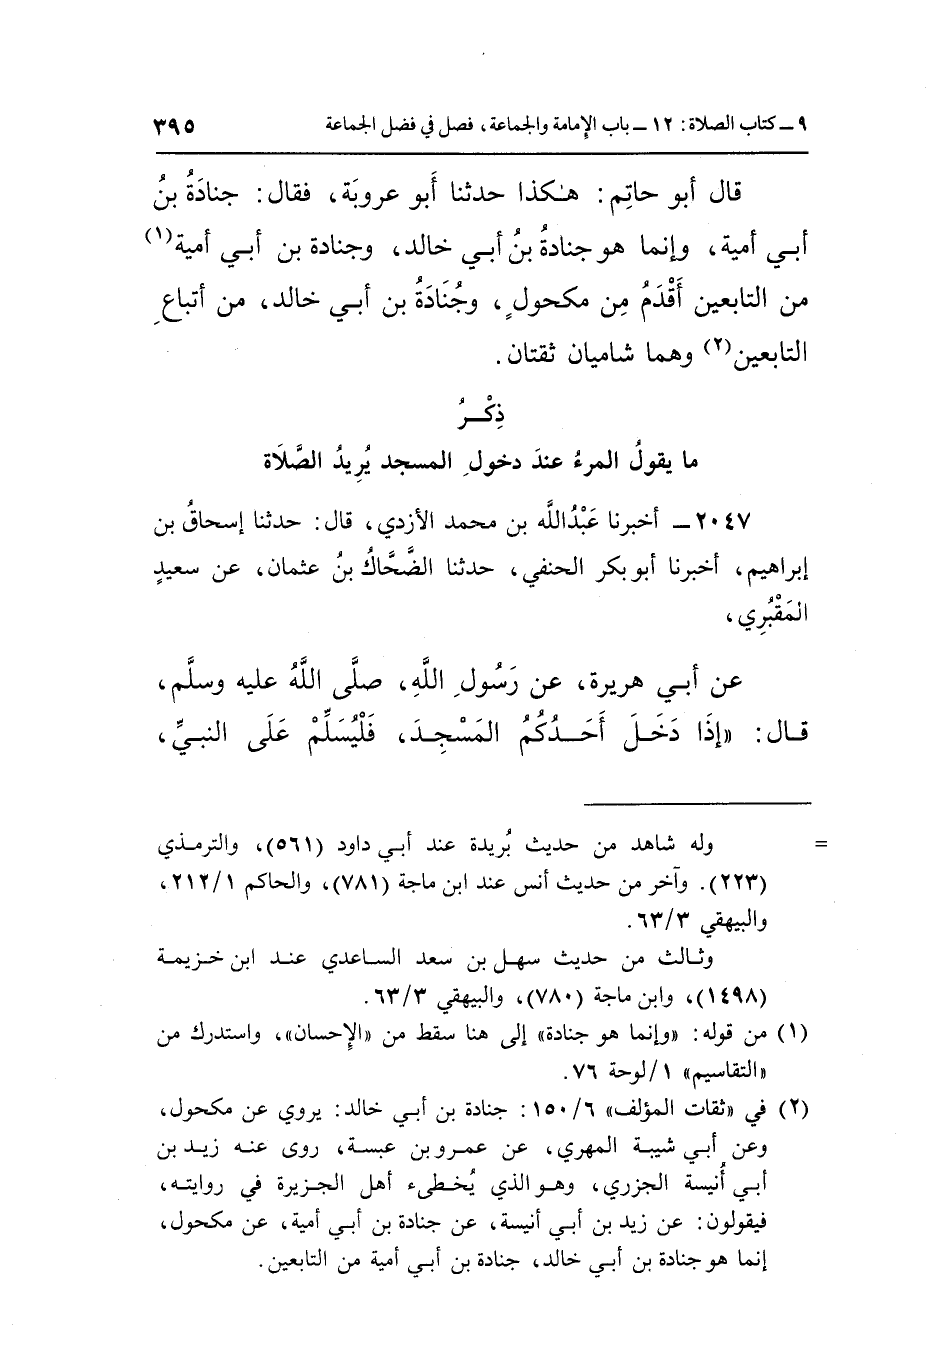 ٩ ـ كتاب الصلاة: ١٢ ـ باب الإمامة والجماعة، فصل في فضل الجماعة ٣٩٥
قال أبو حاتِم: هـٰكذا حدثنا أَبو عروبَة، فقال: جنادَةُ بنُ
أبـي أمية، وإنما هو جنادةُ بنُ أبـي خالد، وجنادة بن أبـي أمية(١)
من التابعين أَقْدَمُ مِن مكحولٍ، وجُنَادَةُ بن أبـي خالد، من أتباعِ
التابعين(٢) وهما شاميان ثقتان.
ذِكْـرُ
ما يقولُ المرءُ عندَ دخولِ المسجد يُرِيدُ الصَّلَاة
٢٠٤٧ ـ أخبرنا عَبْدُاللَّه بن محمد الأزدي، قال: حدثنا إسحاقُ بن
إبراهيم، أخبرنا أبو بكر الحنفي، حدثنا الضَّحَّاكُ بنُ عثمان، عن سعيدٍ
المَقْبُرِي،
عن أبـي هريرة، عن رَسُولِ اللَّهِ، صلَّى اللَّهُ عليه وسلَّم،
قـال: «إذَا دَخَـلَ أَحَـدُكُمُ المَسْجِـدَ، فَلْيُسَلِّمْ عَلَى النبـيِّ،
= وله شاهد من حديث بُريدة عند أبـي داود (٥٦١)، والترمـذي
(٢٢٣). وآخر من حديث أنس عند ابن ماجة (٧٨١)، والحاكم ٢١٢/١،
والبيهقي ٦٣/٣.
وثـالث من حديث سهـل بن سعد السـاعدي عنـد ابن خـزيمـة
(١٤٩٨)، وابن ماجة (٧٨٠)، والبيهقي ٦٣/٣.
(١) من قوله: «وإنما هو جنادة» إلى هنا سقط من «الإحسان»، واستدرك من
«التقاسيم» ١/لوحة ٧٦.
(٢) في «ثقات المؤلف» ١٥٠/٦: جنادة بن أبـي خالد: يروي عن مكحول،
وعن أبـي شيبـة المهري، عن عمـرو بن عبسـة، روى عنـه زيـد بن
أبـي أُنيسة الجزري، وهـو الذي يُخطىء أهل الجـزيرة في روايتـه،
فيقولون: عن زيد بن أبـي أنيسة، عن جنادة بن أبـي أمية، عن مكحول،
إنما هو جنادة بن أبـي خالد، جنادة بن أبـي أمية من التابعين.